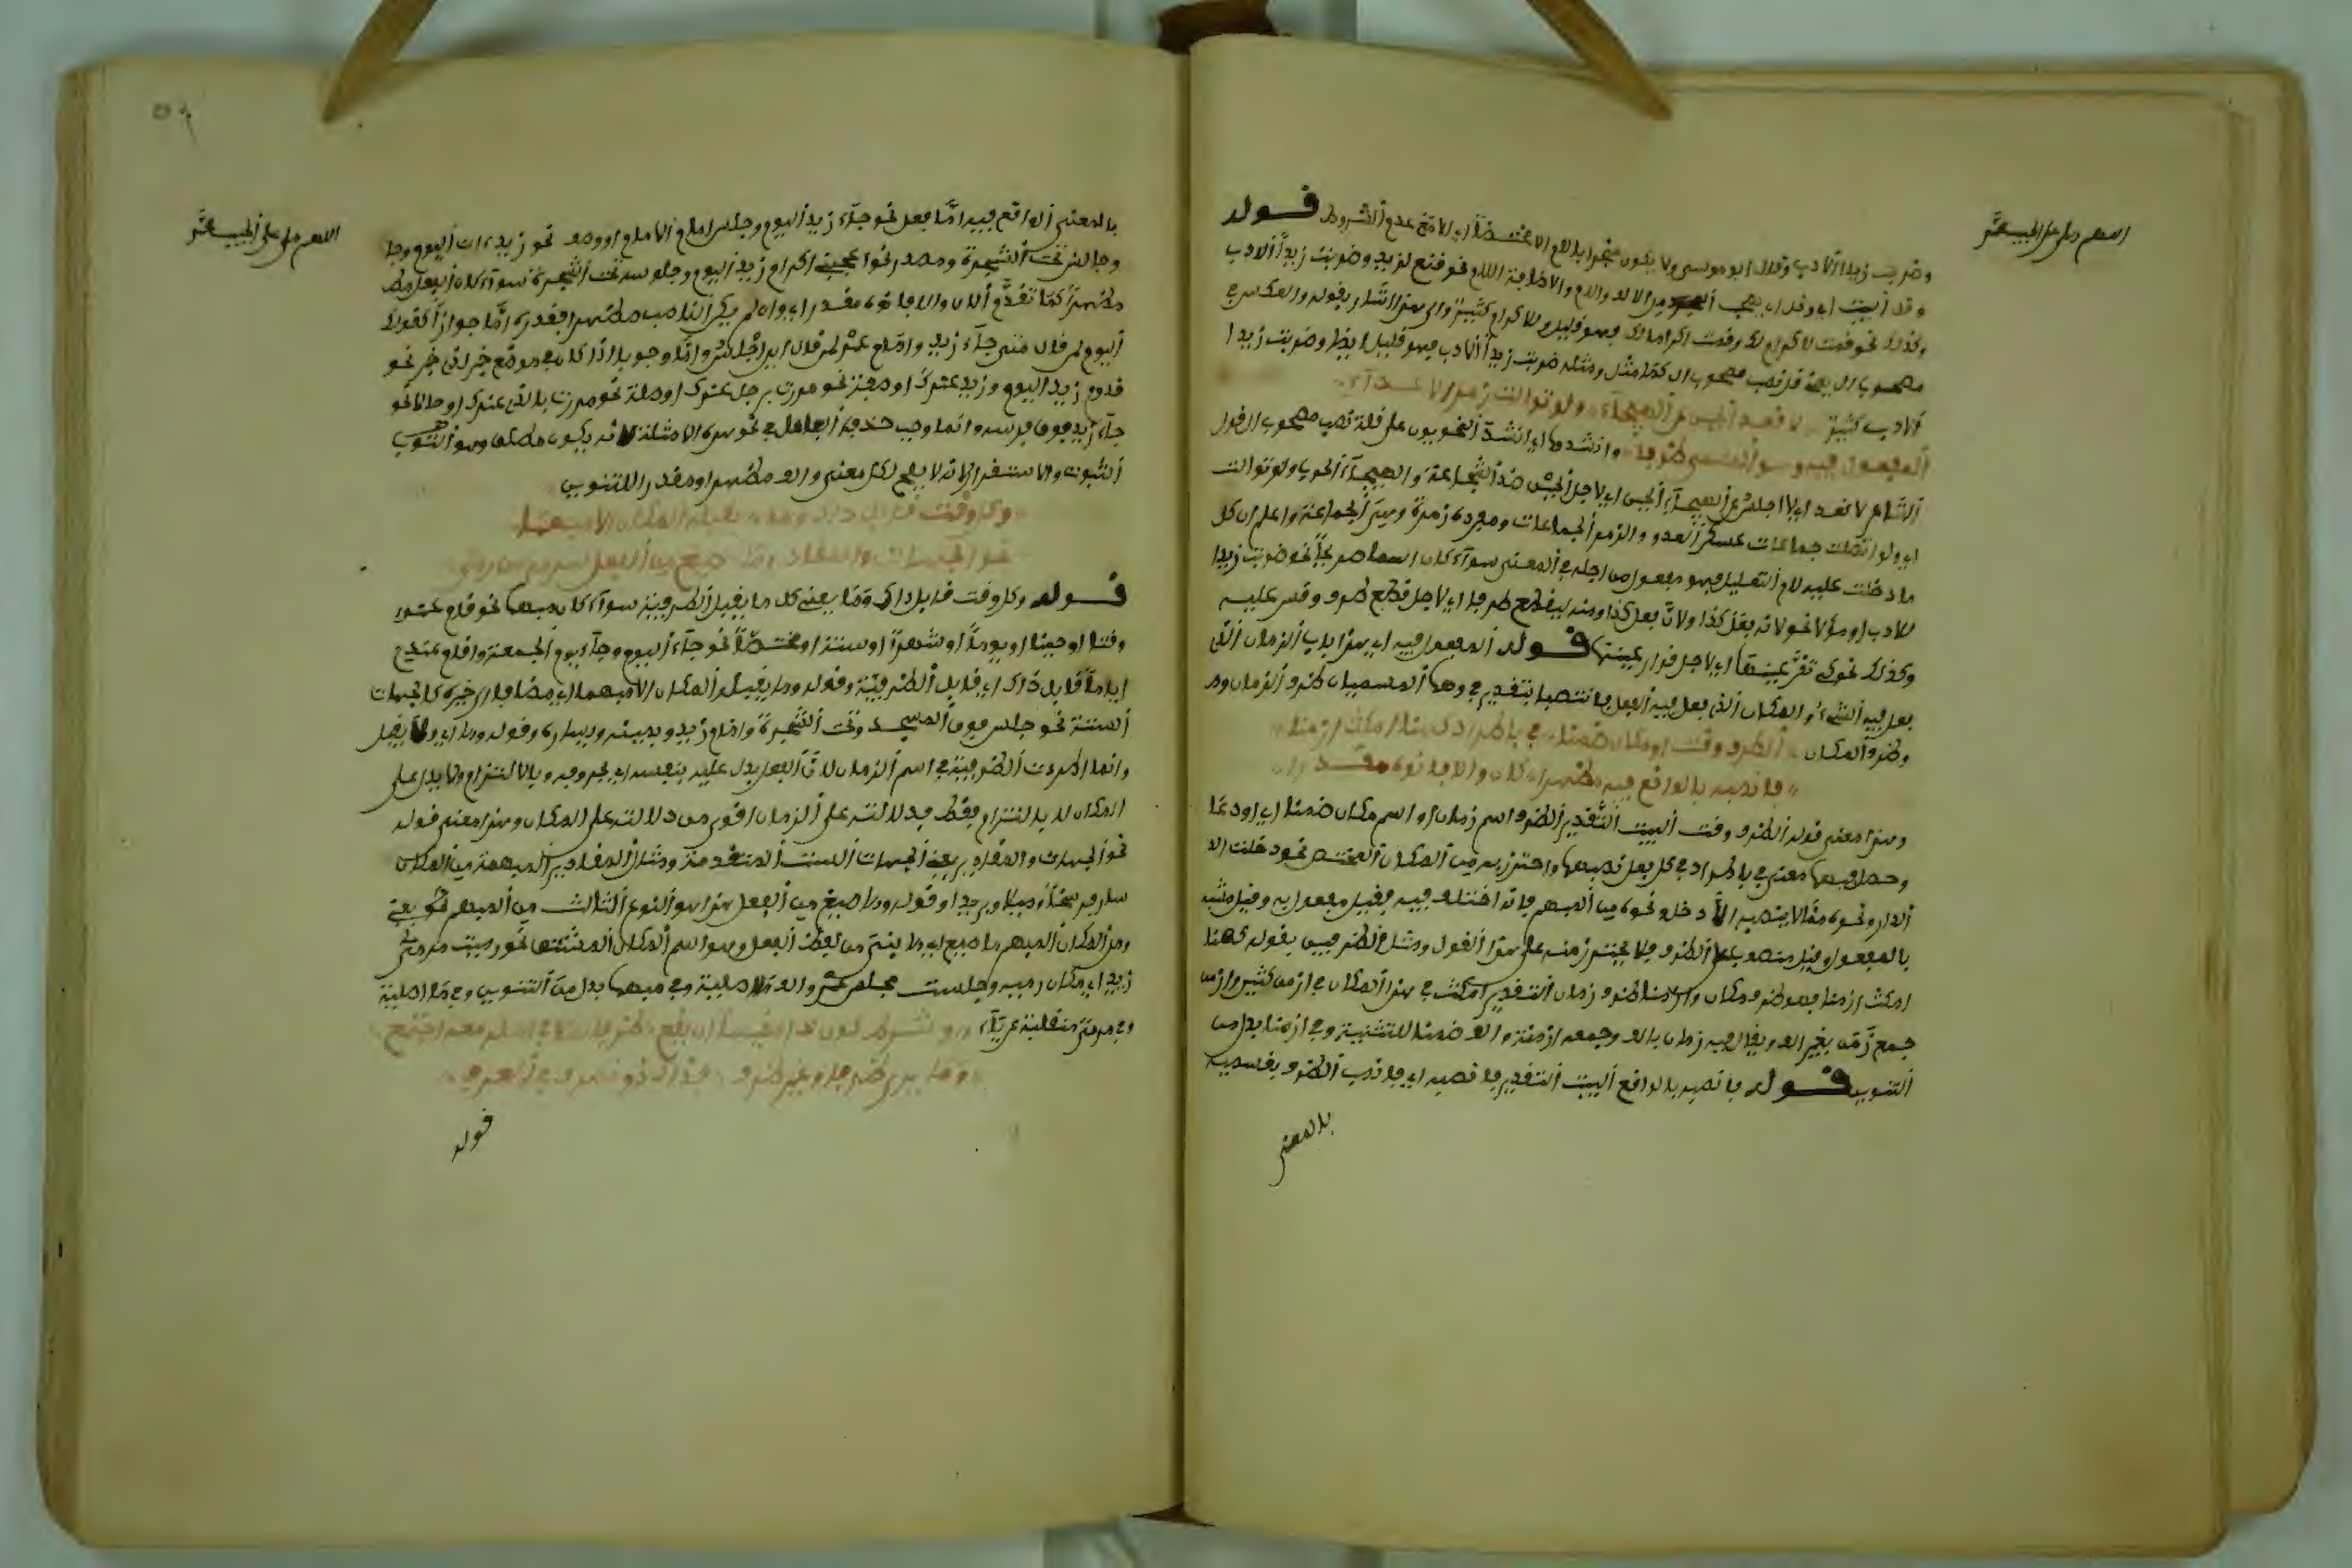 اللهم صل على الحبيب محمد
وضربت زيدا لادب وقال ابو موسى ولا يكون منجرا باللام الا مختصا اي لامتنع عدم الشروط قوله
وقل البيت اي وقل ان يصحب المجرد من الالف واللام والاضافة اللام نحو قنع لزهد وضربت زيدا الادب
وكذلك نحو قمت لاكرام لك وقمت اكراما لك فهو قليل ولاكرام كثير والى هذا اشار بقوله والعكس في
مصحوب ال يعني قل نصب مصحوب ال كما مثل ومثله ضربت زيدا الادب فهو قليل ايضا وضربت زيدا
لادب كثير لا اقعد الجبن عن الهيجاء ولو توالت زمر الاعداء
المفعول فيه وهو المسمى ظرفا وانشدوا اي انشد النحويون على قلة نصب مصحوب ال قول
الشاعر لا اقعد اي لا اجلس عن الهيجاء الجبن اي لاجل الجبن ضد الشجاعة والهيجاء الحرب ولو توالت
اي ولو اتصلت جماعات عسكر العدو والزمر الجماعات ومفرده زمرة وهي الجماعة واعلم ان كل
ما دخلت عليه لام التعليل فهو مفعول من اجله في المعنى سواء كان اسما صريحا نحو ضربت زيدا
للادب او مؤولا نحو لانه يفعل كذا ولان يفعل كذا ومنه ليقطع طرفا اي لاجل قطع طرف وقس عليه
وكذلك نحو كي تقر عينها اي لاجل قرار عينها قوله المفعول فيه اي هذا باب الزمان الذي
يفعل فيه الشيء والمكان الذي يفعل فيه الفعل فانتصبا بتقدير في وهما المسميان ظرف الزمان
وظرف المكان الظرف وقت او مكان ضمنا في باطراد كهنا امكث ازمنا
فانصبه بالواقع فيه مظهرا كان والا فانوه مقدرا
وهذا معنى قوله الظرف وقت البيت التقدير الظرف اسم زمان او اسم مكان ضمنا اي اودعا
وحملا فيهما معنى في باطراد في كل فعل نصبهما واحترز به من المكان المختص نحو دخلت الد
الدار ونحوه مما لا ينصبه الا دخل ونحوه من المبهم فانه اختلف فيه فقيل مفعول به وقيل مشبه
بالمفعول وقيل منصوب على الظرف فلا يحترز منه على هذا القول ومثل الظرفين بقوله كهنا
امكث ازمنا فهنا ظرف مكان وازمنا ظرف زمان التقدير امكث في هذا المكان في ازمن كثير وازمن
جمع زمن بغير الف ويقال فيه زمان بالف وجمعه ازمنة والف ضمنا للتثنية وفي ازمنا بدل من
التنوين قوله فانصبه بالواقع البيت التقدير فانصبه اي فانصب الظرف بقسميه
بالمعنى
اللهم صل على الحبيب محمد
بالمعنى الواقع فيه اما فعل نحو جاء زيد اليوم وجلس امام الامام او وصف نحو زيد ءات اليوم وجا
وجالس تحت الشجرة ومصدر نحو اعجبني اكرام زيد اليوم وجلوسه تحت الشجرة سواء كان الفعل مظ
مظهرا كما تقدم الان والا فانوه مقدرا اي وان لم يكن الناصب مظهرا فقدره اما جوازا كقولك
اليوم لمن قال متى جاء زيد وامام عمر لمن قال اين اجلس واما وجوبا اذا كان في موضع خبر لذي خبر نحو
قدوم زيد اليوم وزيد عندك او صفة نحو مررت برجل عندك او صلة نحو مررت بالذي عندك او حالا نحو
جاء زيد فوق فرسه وانما وجب حذف العامل في نحو هذه الامثلة لانه يكون مطلق وهو الثبوت
الثبوت والاستقرار لانه لا يصلح لكل معنى والف مظهرا ومقدرا للتنوين
وكل وقت قابل ذاك وما يقبله المكان الا مبهما
نحو الجهات والمقادير وما صيغ من الفعل كمرمى من رمى
قوله وكل وقت قابل ذاك وما يعني كل ما يقبل الظرفية سواء كان مبهما نحو قام عندي
وقتا او حينا او يوما او شهرا او سنة او مختصا نحو جاء اليوم وجاء يوم الجمعة واقام عندي
اياما قابل ذاك اي قابل الظرفية وقوله وما يقبله المكان الا مبهما اي مضافا الى غيره كالجهات
الستة نحو جلس فوق المسجد وتحت الشجرة وامام زيد ويمينه ويساره وقوله وما اي ولا يقبل
وانما اطردت الظرفية في اسم الزمان لان الفعل يدل عليه بنفسه اي بحروفه وبالالتزام ولا يدل على
المكان الا بالالتزام فقط فدلالته على الزمان اقوى من دلالته على المكان وهذا معنى قوله
نحو الجهات والمقادير يعني الجهات الست المتقدمة ومثال المقادير المبهمة من المكان
سار فرسخا وميلا وبريدا وقوله وما صيغ من الفعل هذا هو النوع الثالث من المبهم يعني
ومن المكان المبهم ما صيغ اي ما يبنى من لفظ الفعل وهو اسم المكان المشتق نحو رميت مرمى
زيد اي مكان رميه وجلست مجلس عمر والف الاصلية وفي مبهما بدل من التنوين وفي ما اصلية
وفي مرمى منقلبة عن ياء وشرط كون ذا مقيسا ان يقع ظرفا لما في اصله معه اجتمع
وما يرى ظرفا وغير ظرف فذاك ذو تصرف في العرف
قوله